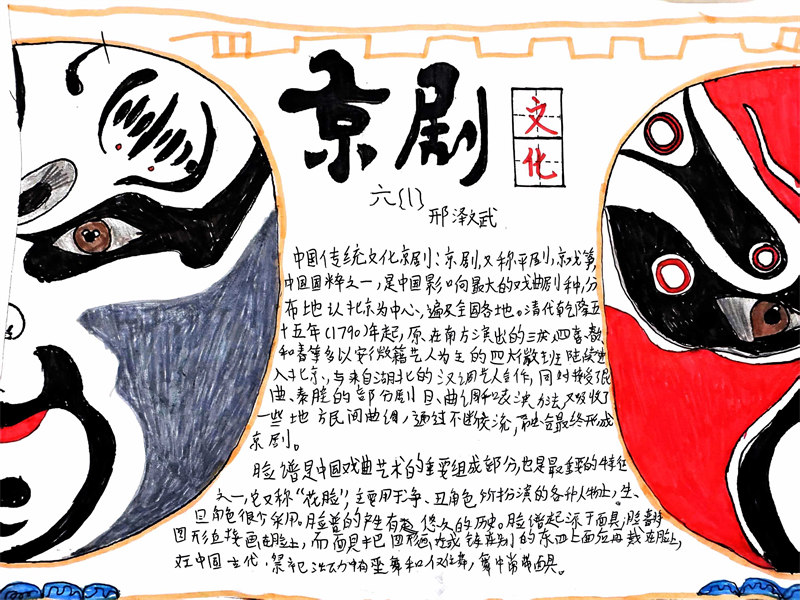 京剧文化
六{1}
邢泽斌
中国传统文化京剧:京剧,又称平剧,京戏等,
中国国粹之一,是中国影响最大的戏曲剧种,分
布地以北京为中心,遍及全国各地。清代乾隆五
十五年(1790)年起,原在南方演出的三庆、四喜、春
和春等多以安徽籍艺人为主的四大徽班陆续进
入北京,与来自湖北的汉调艺人合作,同时接受昆
曲、秦腔的部分剧目、曲调和表演方法,又吸收了
一些地方民间曲调,通过不断交流,融合最终形成
京剧。
脸谱是中国戏曲艺术的重要组成部分,也是最重要的特征
之一,它又称“花脸”,主要用于净、丑角色所扮演的各种人物上,生、
旦角色很少采用。脸谱的产生有悠久的历史。脸谱起源于面具,脸谱将
图形直接画在脸上,而面具把图形画或铸在别的东西上面后再戴在脸上,
在中国古代,祭祀活动中有巫舞和傩舞,舞中常带面具。